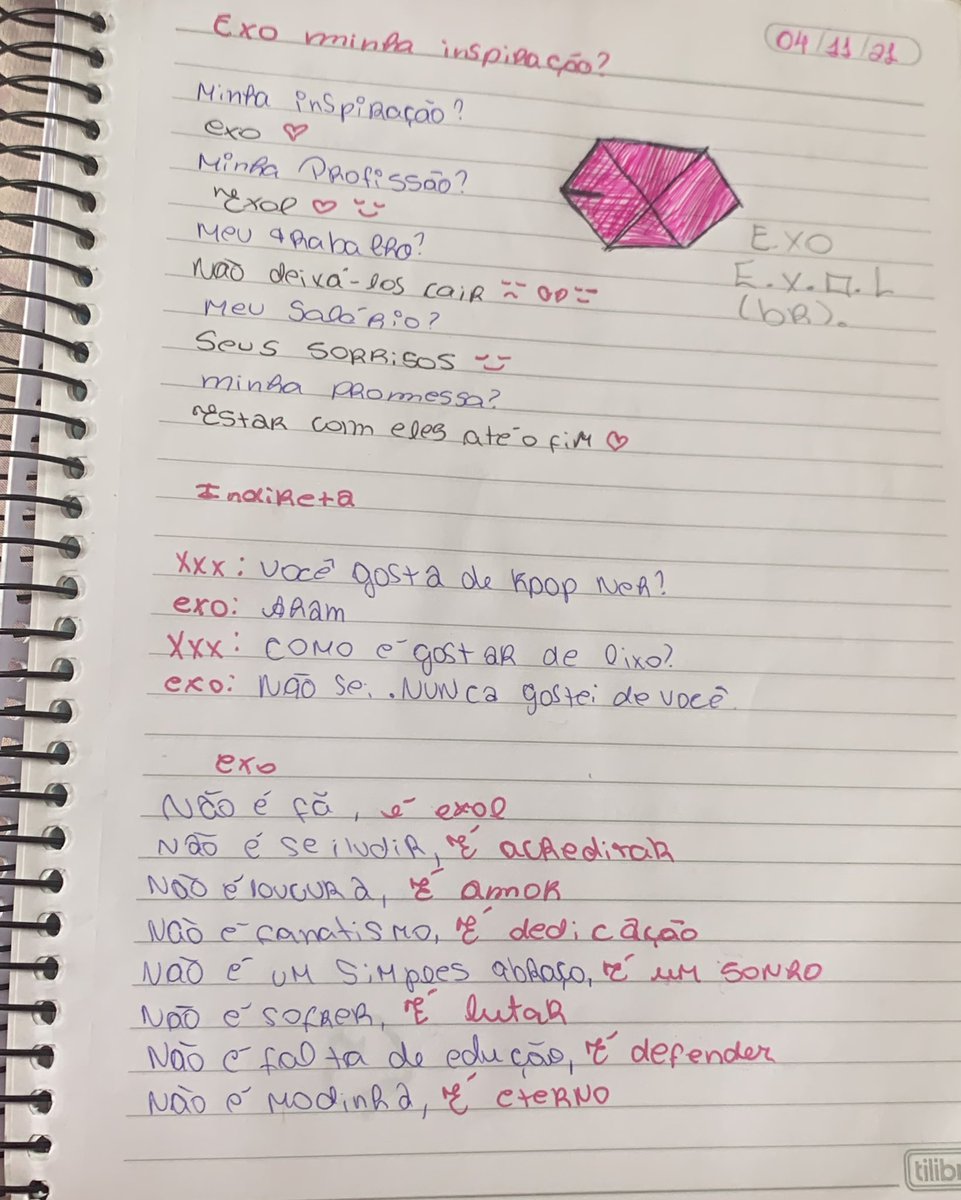 Exo minha inspiração?
04/11/21
Minha inspiração?
exo ♡
Minha Profissão?
Exol ♡
Meu trabalho?
Não deixá-los cair
Meu Salário?
Seus SORRISOS
minha promessa?
Estar com eles até o fim ♡
EXO
E.X.O.L
(bR).
Indireta
xxx: você gosta de kpop Ner?
exo: Aham
xxx: como é gostar de lixo?
exo: Não sei. NUNCA gostei de você
exo
Não é fã, é exol
Não é se iludir, É acreditar
Não é loucura, É amor
Não é fanatismo, É dedicação
Não é um simples abraço, É um sonho
Não é sofrer, É lutar
Não é falta de edução, É defender
Não é modinha, É eterno